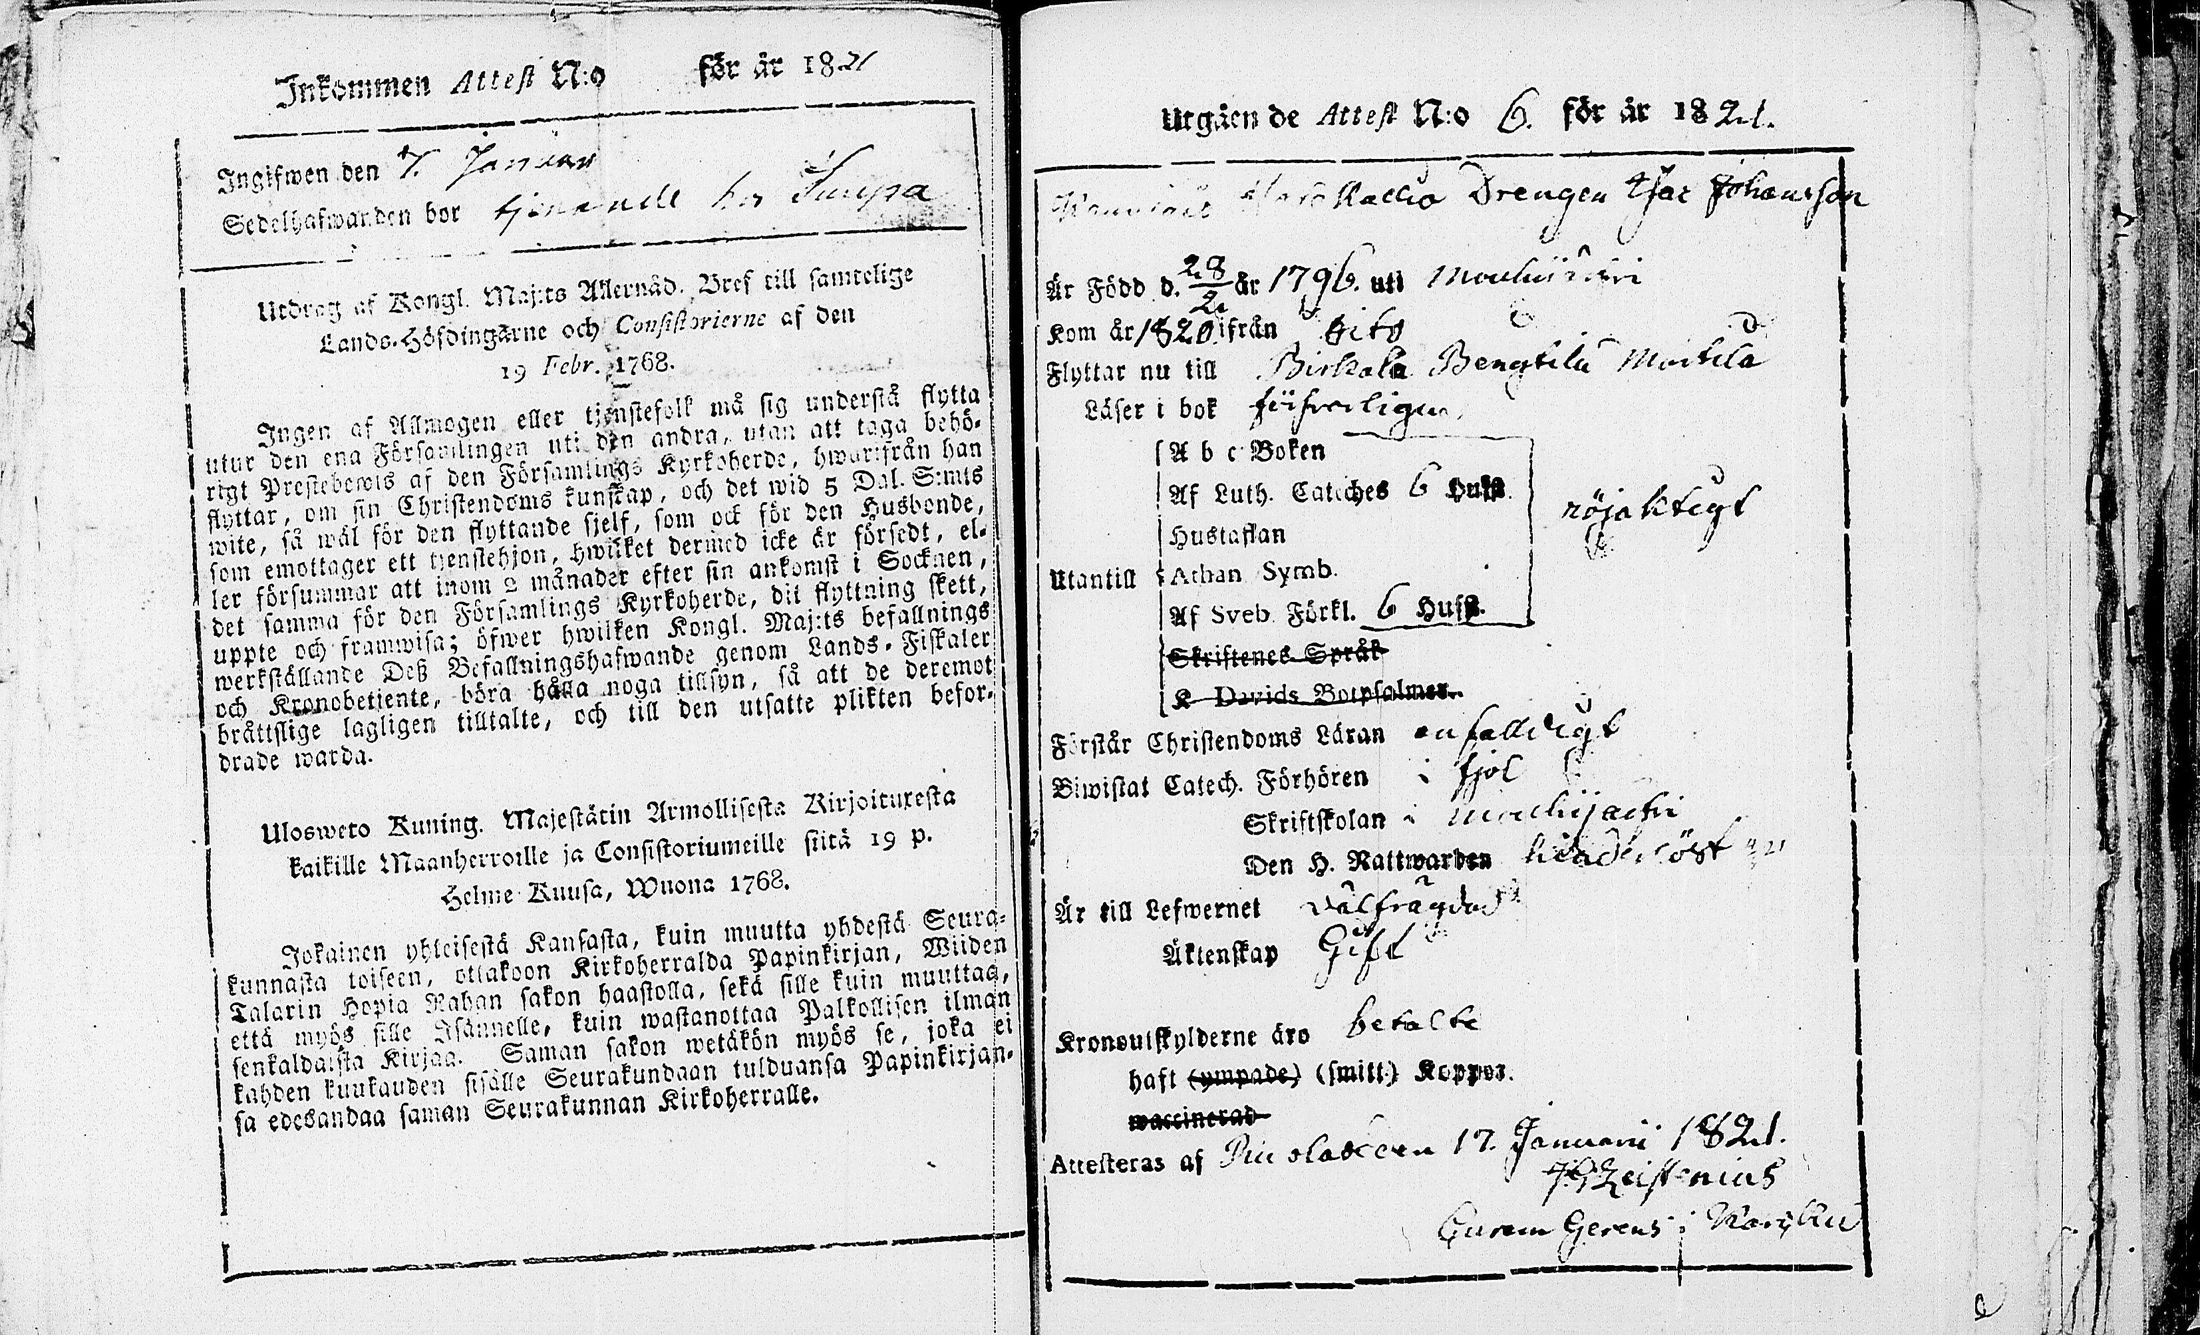 Inkommen Attest N:o för år 1821
Ingifwen den 7. Januari
Sedelhafwanden bor tjenande hos
Utdrag af Kongl. Maj:ts Allernåd. Bref till samtelige
Lands-Höfdingarne och Consistorierne af den
19 Febr. 1768.
Ingen af Allmogen eller tjenstefolk må sig understå flytta
utur den ena Församlingen uti den andra, utan att taga behö-
rigt Prestebewis af den Församlings Kyrkoherde, hwartifrån han
flyttar, om sin Christendoms kunskap, och det wid 5 Dal. S:mts
wite, så wäl för den flyttande sjelf, som ock för den Husbonde,
som emottager ett tjenstehjon, hwilket dermed icke är försedt, el-
ler försummar att inom 2 månader efter sin ankomst i Socknen,
det samma för den Församlings Kyrkoherde, dit flyttning skett,
uppte och framwisa; öfwer hwilken Kongl. Maj:ts befallnings
werkställande Deß Befallningshafwande genom Lands-Fiskaler
och Kronobetjente, böra hålla noga tillsyn, så att de deremot
bråttslige lagligen tilltalte, och till den utsatte plikten befor-
drade warda.
Ulosweto Kuning. Majestätin Armollisesta Kirjoituxesta
kaikille Maanherroille ja Consistoriumeille siitä 19 p.
Helme Kuusa, Wuona 1768.
Jokainen yhteisestä Kansasta, kuin muutta yhdestä Seura-
kunnasta toiseen, ottakoon Kirkoherralda Papinkirjan, Wiiden
Talarin Hopia Rahan sakon haastolla, sekä sille kuin muuttaa,
että myös sille Isännelle, kuin wastanottaa Palkollisen ilman
senkaldaista Kirjaa. Saman sakon wetäkön myös se, joka ei
kahden kuukauden sisälle Seurakundaan tulduansa Papinkirjan-
sa edesandaa saman Seurakunnan Kirkoherralle.
Utgåen de Attest N:o 6. för år 1821.
Drengen Isac Johansson
Är Född d. 28/2 år 1796. uti Mouhijärvi
Kom år 1820 ifrån hito
Flyttar nu till Birkala Bengtilä Mattila
Läser i bok
A b c Boken
Af Luth. Cateches 6 Hufst.
nöjaktigt
Hustaflan
Utantill Athan Symb.
Af Sveb. Förkl. 6 Hufst.
Skriftenes Språk
K Davids Botpsalmer.
Förstår Christendoms Läran enfalldigt
Biwistat Catech. Förhören i fjol
Skriftskolan i Mouhijärfvi
Den H. Nattwarden
Är till Lefwernet välfrägdad
Äktenskap Gift
Kronoutskylderne äro betalte
haft (ympade) (smitt.) Koppor.
waccinerad
Attesteras af den 17. Januarii 1821.
Curam Gerens i Karkku